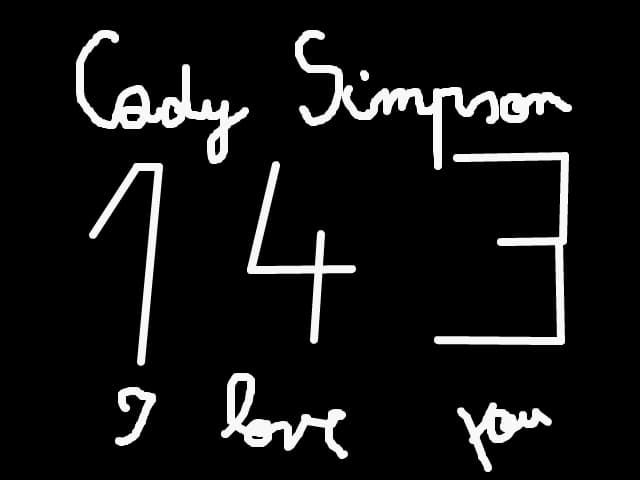 Cady Simpson
1 4 3
I love you